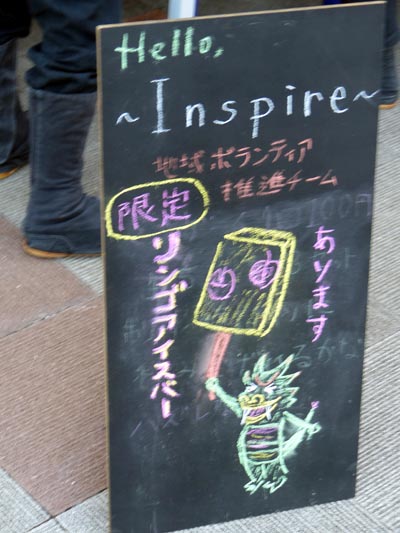 Hello,
~Inspire~
地域ボランティア
推進チーム
限定
リンゴアイスバー
あります